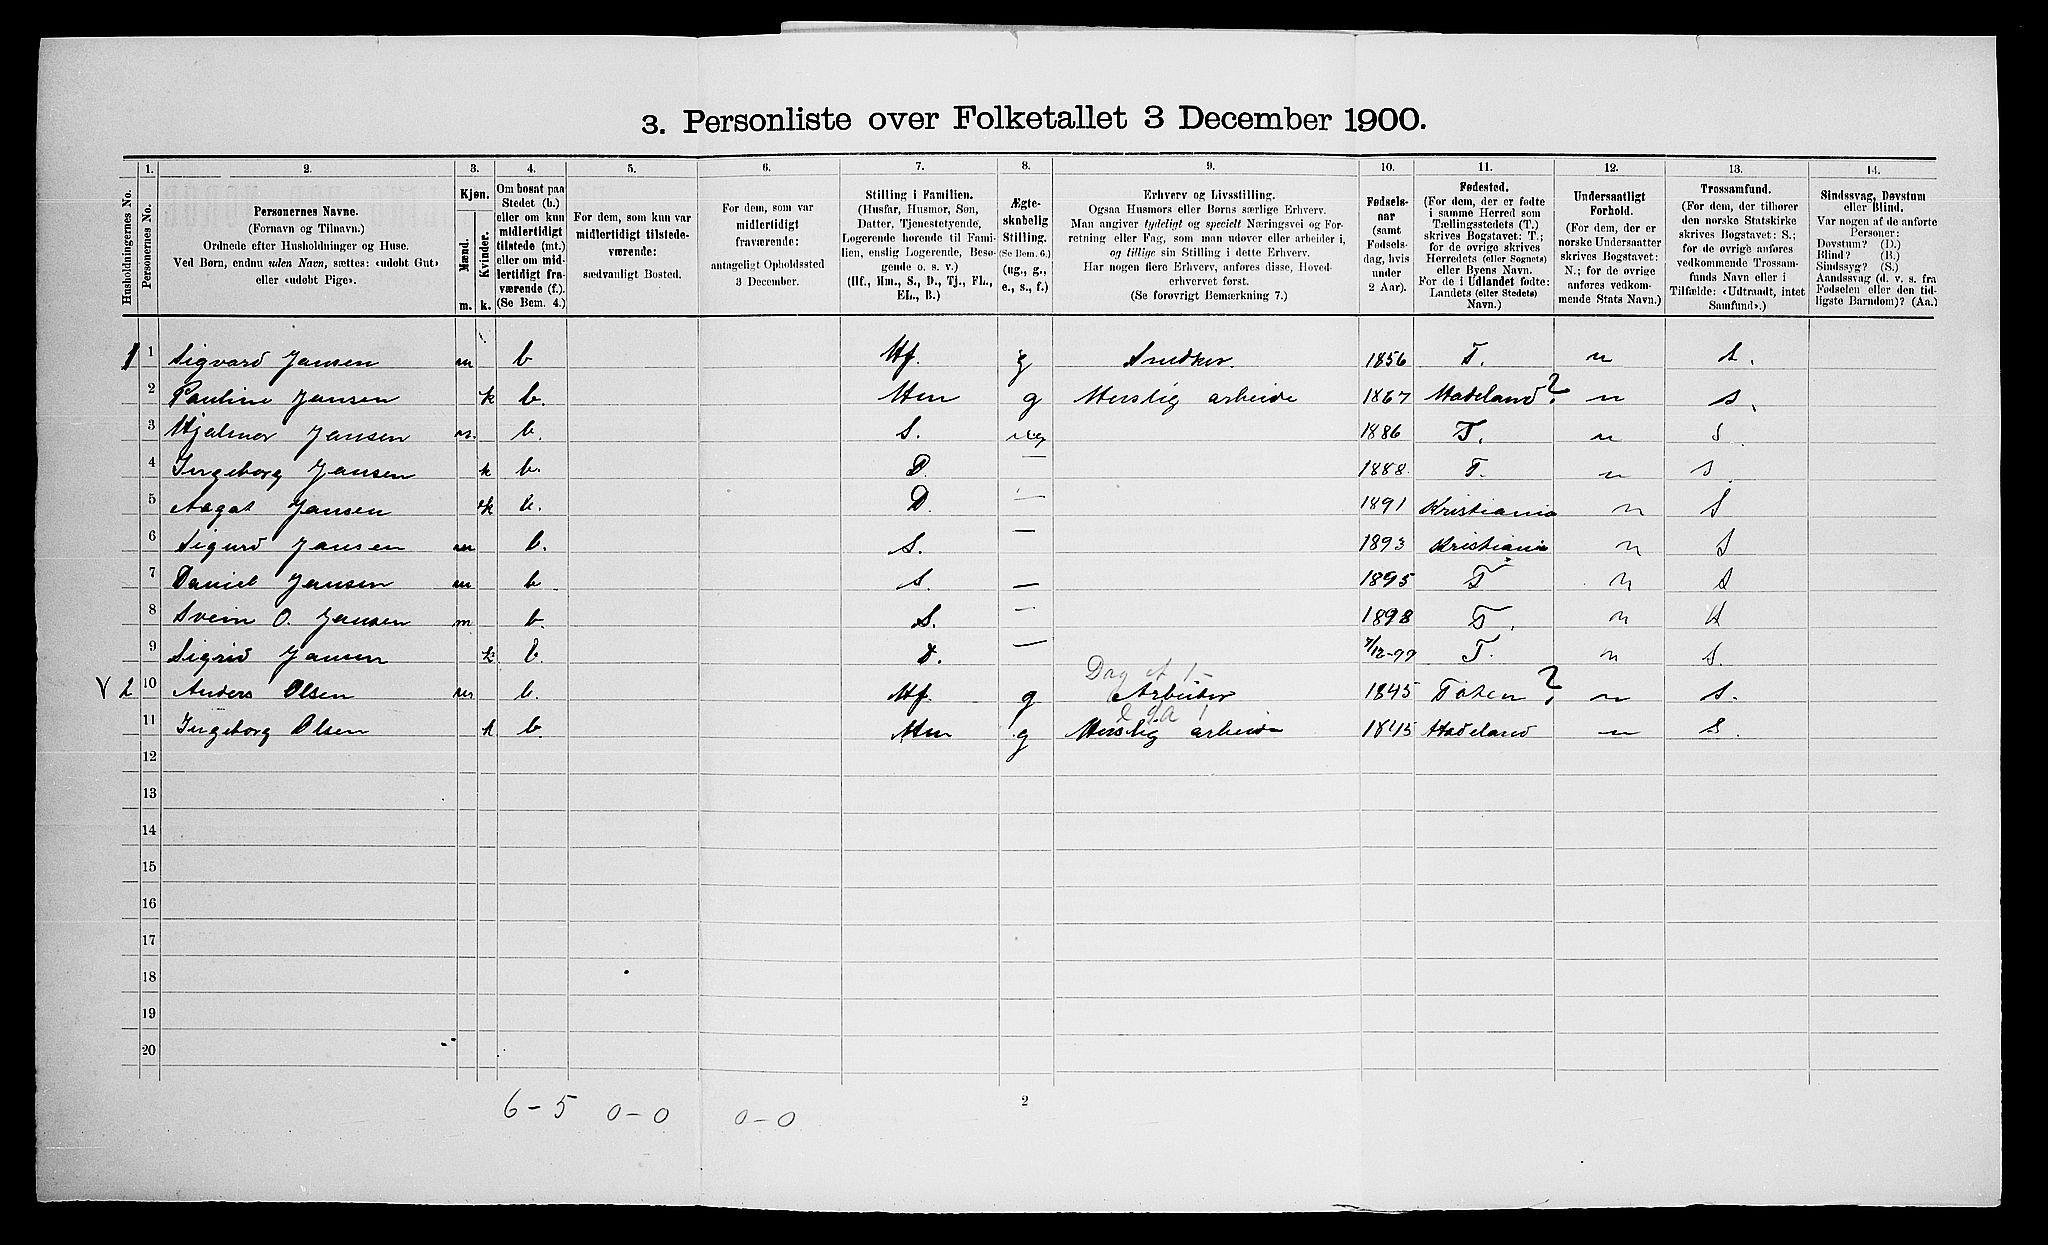 3. Personliste over Folketallet 3 December 1900.
1. 2. 3. 4. 5. 6. 7. 8. 9. 10. 11. 12. 13. 14.
Husholdningernes No.
Personernes No.
Personernes Navne.
(Fornavn og Tilnavn.)
Ordnede efter Husholdninger og Huse.
Ved Børn, endnu uden Navn, sættes: «udøbt Gut»
eller «udøbt Pige».
Kjøn.
Mænd. Kvinder.
m. k.
Om bosat paa
Stedet (b.)
eller om kun
midlertidigt
tilstede (mt.)
eller om mid-
lertidigt fra-
værende (f.)
(Se Bem. 4.)
For dem, som kun var
midlertidigt tilstede-
værende:
sædvanligt Bosted.
For dem, som var
midlertidigt
fraværende:
antageligt Opholdssted
3 December.
Stilling i Familien.
(Husfar, Husmor, Søn,
Datter, Tjenestetyende,
Logerende hørende til Fami-
lien, enslig Logerende, Besø-
gende o. s. v.)
(Hf., Hm., S., D., Tj., FL.,
EL., B.)
Ægte-
skabelig
Stilling.
(Se Bem. 6.)
(ug., g.,
e., s., f.)
Erhverv og Livsstilling.
Ogsaa Husmors eller Børns særlige Erhverv.
Man angiver tydeligt og specielt Næringsvei og For-
retning eller Fag, som man udøver eller arbeider i,
og tillige sin Stilling i dette Erhverv.
Har nogen flere Erhverv, anføres disse, Hoved-
erhvervet først.
(Se forøvrigt Bemærkning 7.)
Fødsels-
aar
(samt
Fødsels-
dag, hvis
under
2 Aar).
Fødested.
(For dem, der er fødte
i samme Herred som
Tællingsstedets (T.)
skrives Bogstavet: T.;
for de øvrige skrives
Herredets (eller Sognets)
eller Byens Navn.
For de i Udlandet fødte:
Landets (eller Stedets)
Navn.)
Undersaatligt
Forhold.
(For dem, der er
norske Undersaatter
skrives Bogstavet:
N.; for de øvrige
anføres vedkom-
mende Stats Navn.)
Trossamfund.
(For dem, der tilhører
den norske Statskirke
skrives Bogstavet: S.;
for de øvrige anføres
vedkommende Trossam-
funds Navn eller i
Tilfælde: «Udtraadt, intet
Samfund».)
Sindssvag, Døvstum
eller Blind.
Var nogen af de anførte
Personer:
Døvstum? (D.)
Blind? (B.)
Sindssyg? (S.)
Aandssvag (d. v. s. fra
Fødselen eller den tid-
ligste Barndom)? (Aa.)
1 1 Sigvard Jansen m b Hf. g Snedker. 1856 T. n S.
2 Pauline Jansen k b. Hm g Huslig arbeide 1867 Hadeland? n S.
3 Hjalmar Jansen m. b. S. ug 1886 T. n S.
4 Ingeborg Jansen k b. D. — 1888. T. n S.
5 Aagot Jansen k b. D. — 1891 Kristiania n S
6 Sigurd Jansen m b. S. — 1893 Kristiania n S
7 Daniel Jansen m b S. — 1895 T n S
8 Svein O. Jansen m b. S. — 1898 T. n S
9 Sigrid Jansen k b. D. — 7/12-99 T. n S.
Dag
V 2 10 Anders Olsen m b. Hf. g Arbeider 1845 Toten? n S.
11 Ingeborg Olsen k b. Hm g Huslig arbeide 1845 Hadeland n S.
12
13
14
15
16
17
18
19
20
6-5 0-0 0-0
2